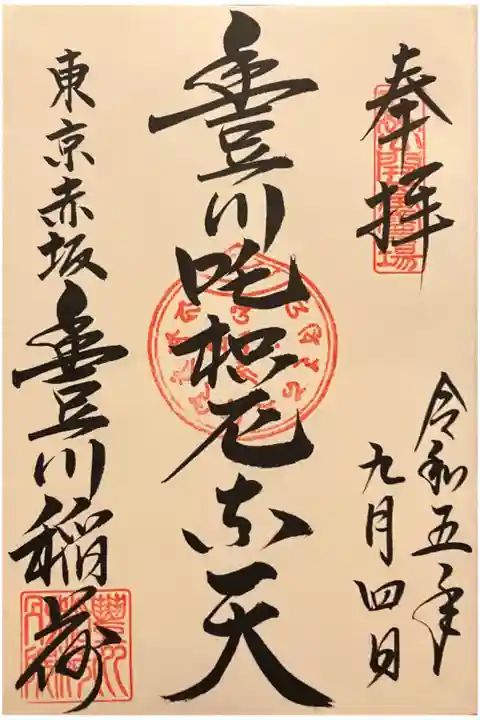 奉拝
令和五年
九月四日
豊川吒枳尼真天
東京赤坂豊川稲荷